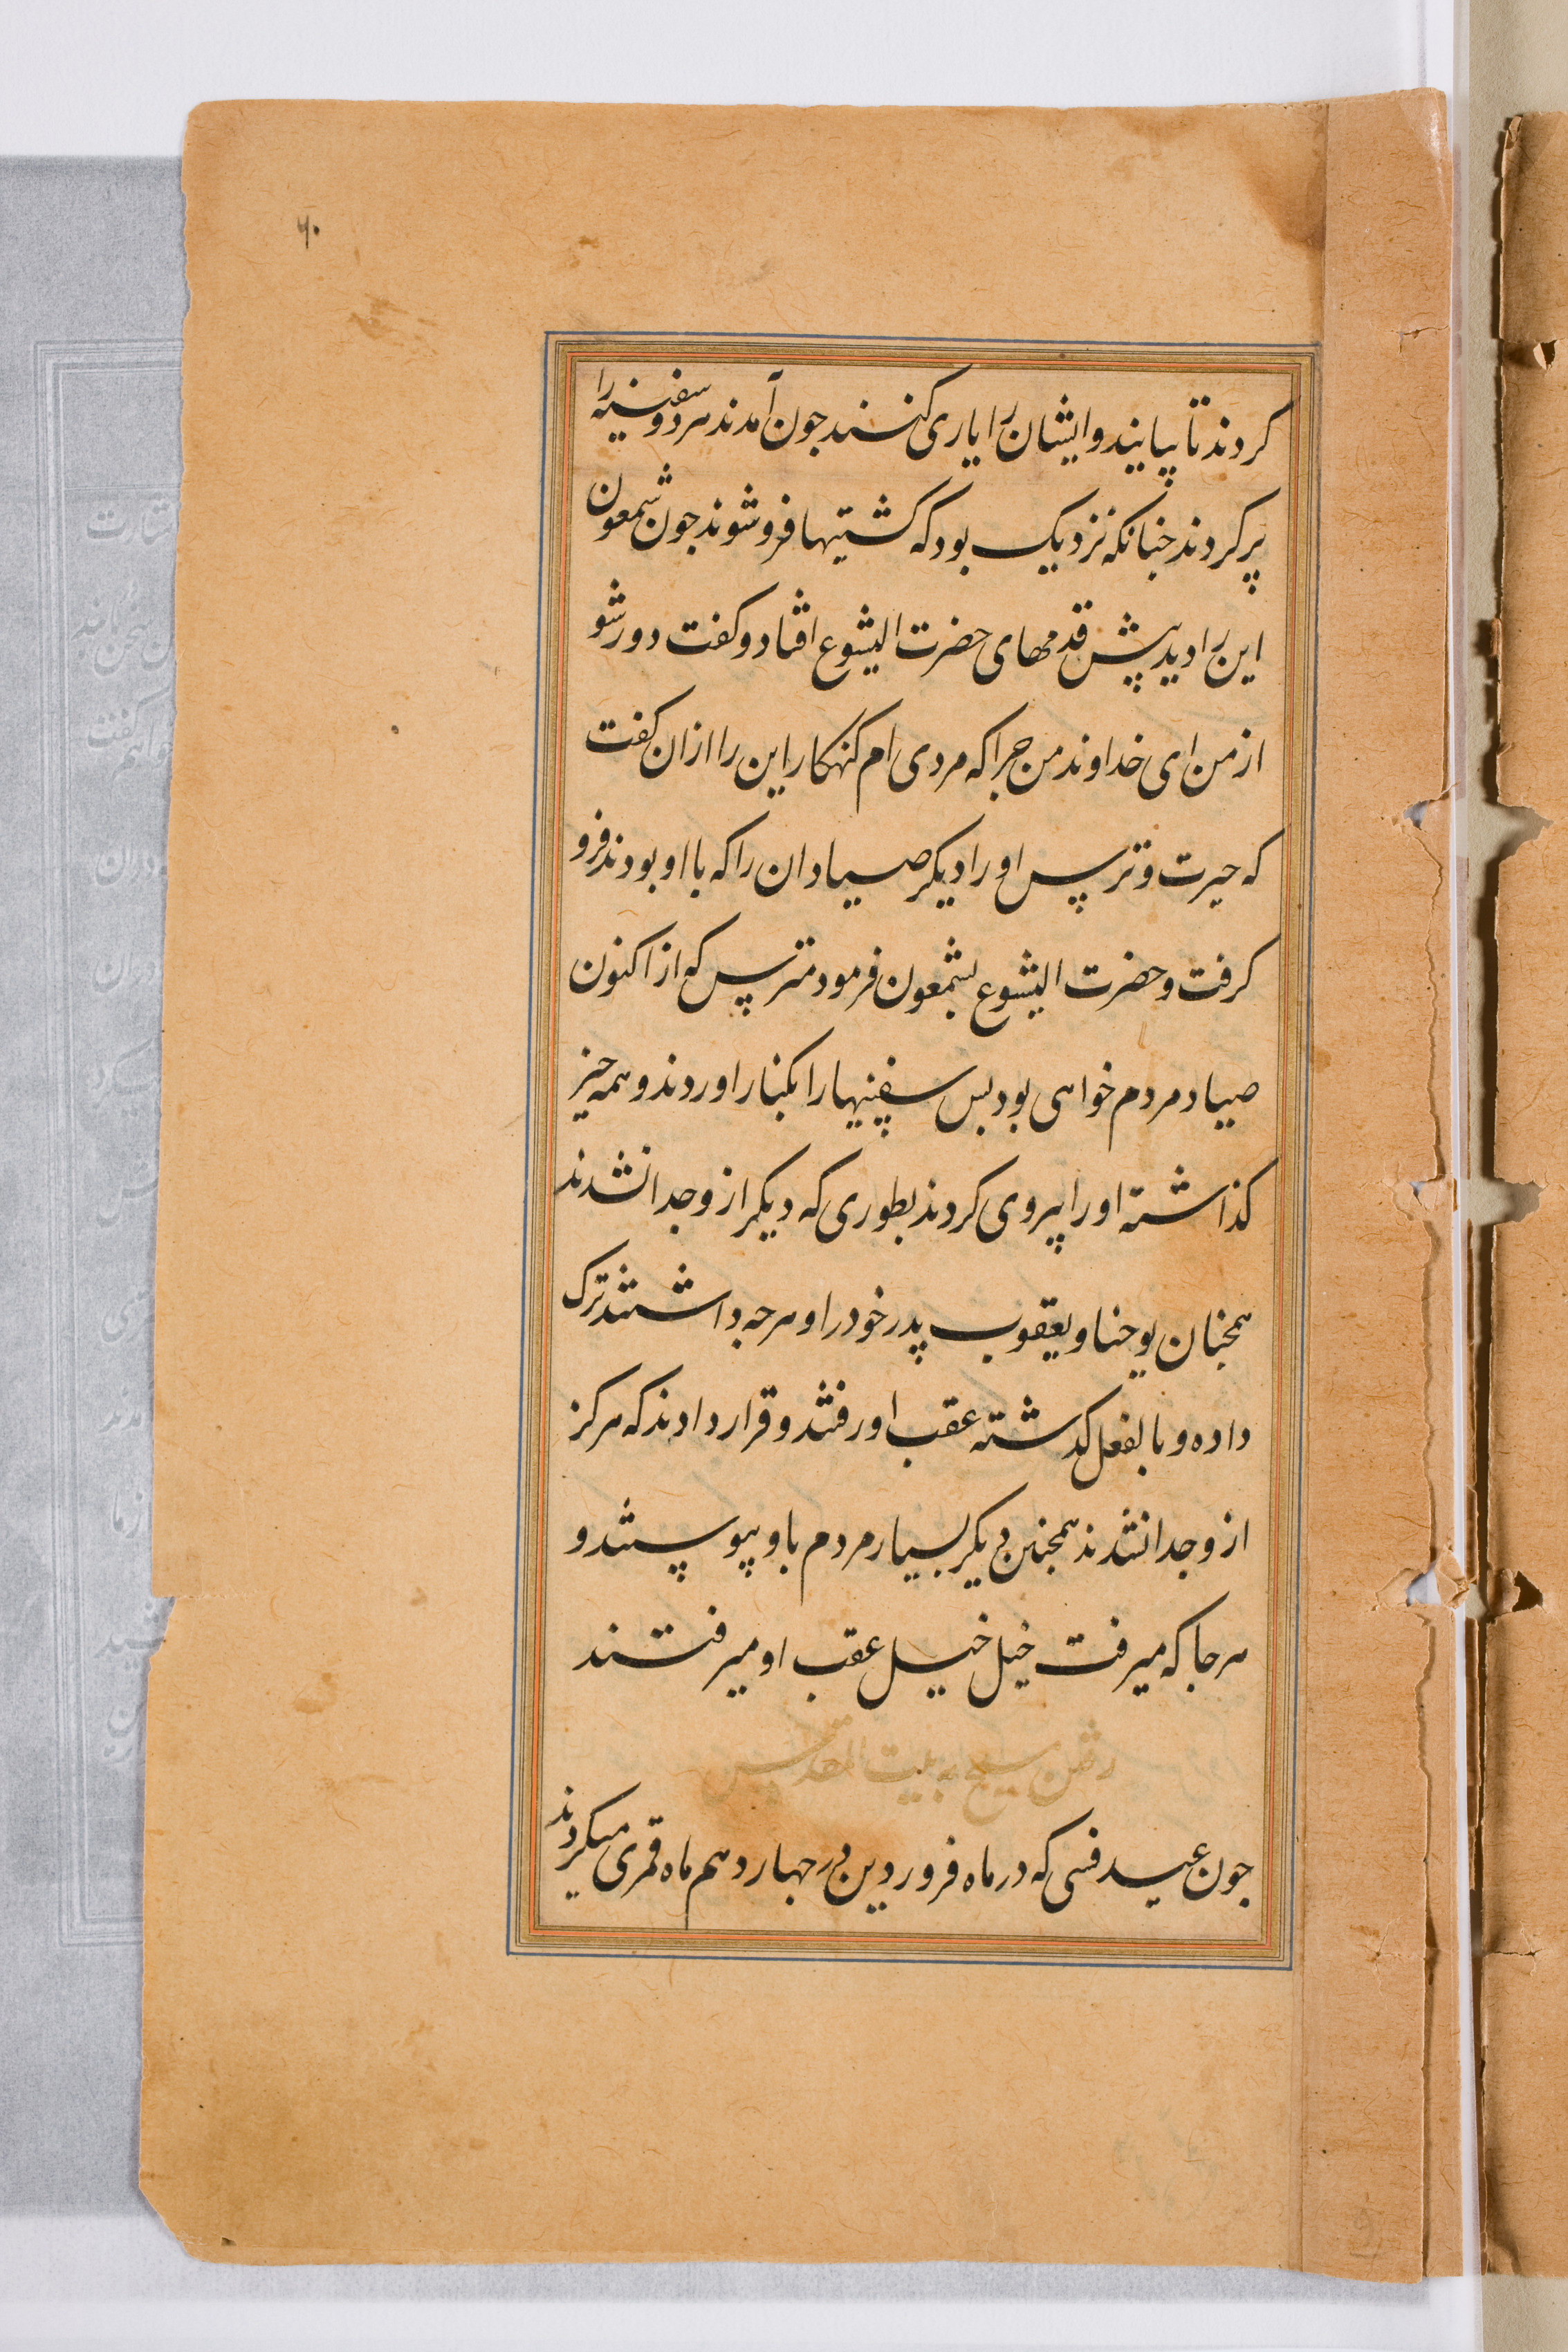 ۶۰
کردند تا بیایند و ایشان را یاری کنند جون آمدند هر دو سفینه را
پر کردند جنانکه نزدیک بود که کشتیها فرو شوند جون شمعون
این را دید پیش قدمهای حضرت الیشوع افتاد و کفت دور شو
از من ای خداوند من جرا که مردی ام کنهکار این را از ان کفت
که حیرت و ترس او را دیکر صیادان را که با او بودند فرو
کرفت و حضرت الیشوع بشمعون فرمود مترس که از اکنون
صیاد مردم خواهی بود بس سفینها را بکنار اوردند و همه جیز
کذاشته او را پیروی کردند بطوری که دیکر ازو جدا نشدند
همجنان یوحنا و یعقوب پدر خود را و هرجه داشتند ترک
داده و بالفعل کذشته عقب او رفتند و قرار دادند که هرکز
ازو جدا نشدند همجنین دیکر بسیار مردم باو پیوستند و
هر جا که میرفت خیل خیل عقب او میرفتند
رفتن مسیح به بیت المقدس
جون عید فسی که در ماه فروردین در جهاردهم ماه قمری میکردند